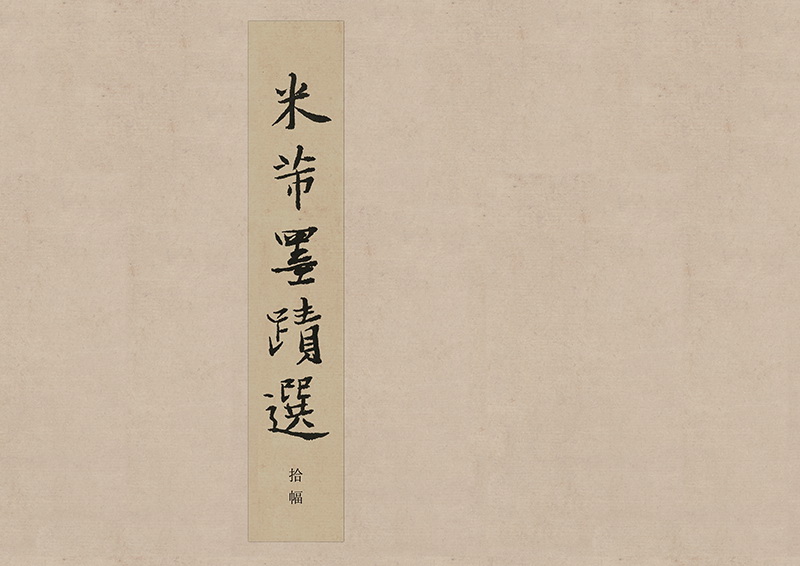 米芾墨蹟選
拾幅